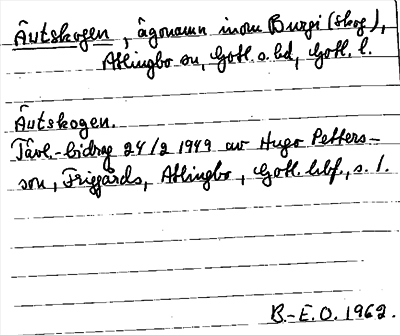 Äutskogen, ägonamn inom Burgi (skog),
Atlingbo sn, Gotl. s. hd, Gotl. l.
Äutskogen.
Tävl.-bidrag 24/2 1949 av Hugo Petters-
son, Friggårds, Atlingbo, Gotl. hbf., s. 1.
B.-E.O. 1962.